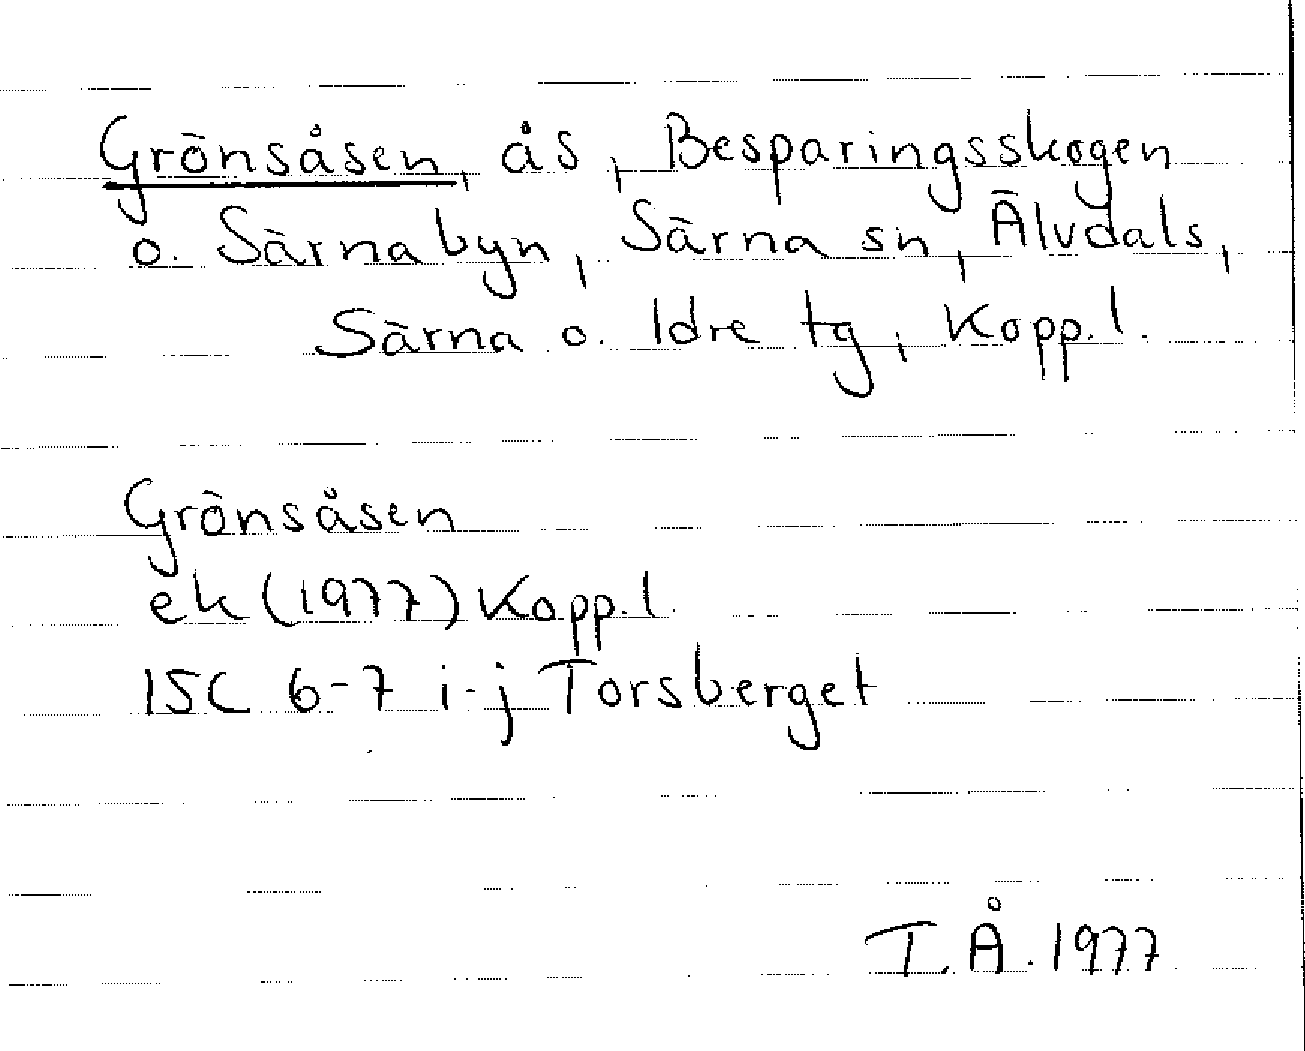 Grönsåsen, ås, Besparingsskogen
o. Särnabyn, Särna sn, Älvdals,
Särna o. Idre tg, Kopp. l.
Grönsåsen
ek (1977) Kopp. l.
15C 6-7 i-j Torsberget
T. Å. 1977